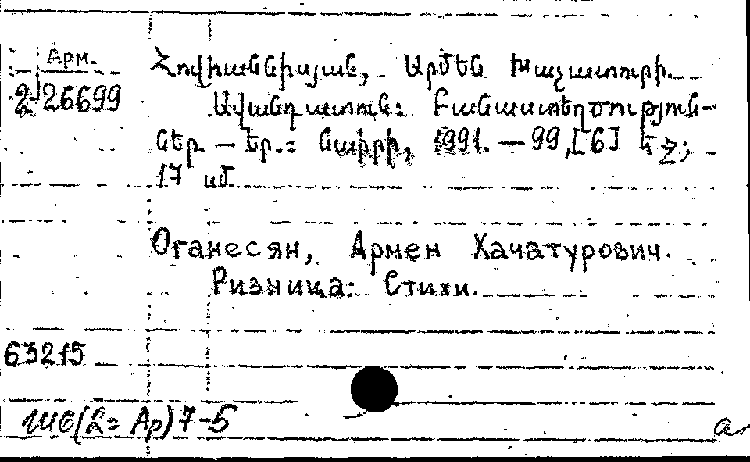 Арм.
2-26699
Հովհաննիսյան, Արմեն Խաչատուրի.
Ավանդատուն: Բանաստեղծություն-
ներ. — Եր.: Նաիրի, 1991. — 99,[6] էջ;
17 սմ.
Оганесян, Армен Хачатурович.
Ризница: Стихи.
63215
Ш6(2=Ар)7-5